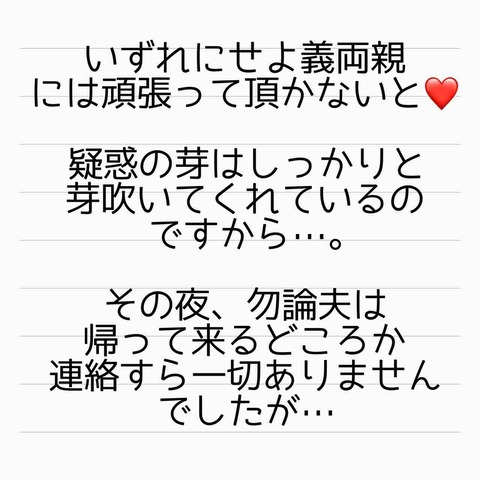 いずれにせよ義両親
には頑張って頂かないと❤️
疑惑の芽はしっかりと
芽吹いてくれているの
ですから…。
その夜、勿論夫は
帰って来るどころか
連絡すら一切ありません
でしたが…